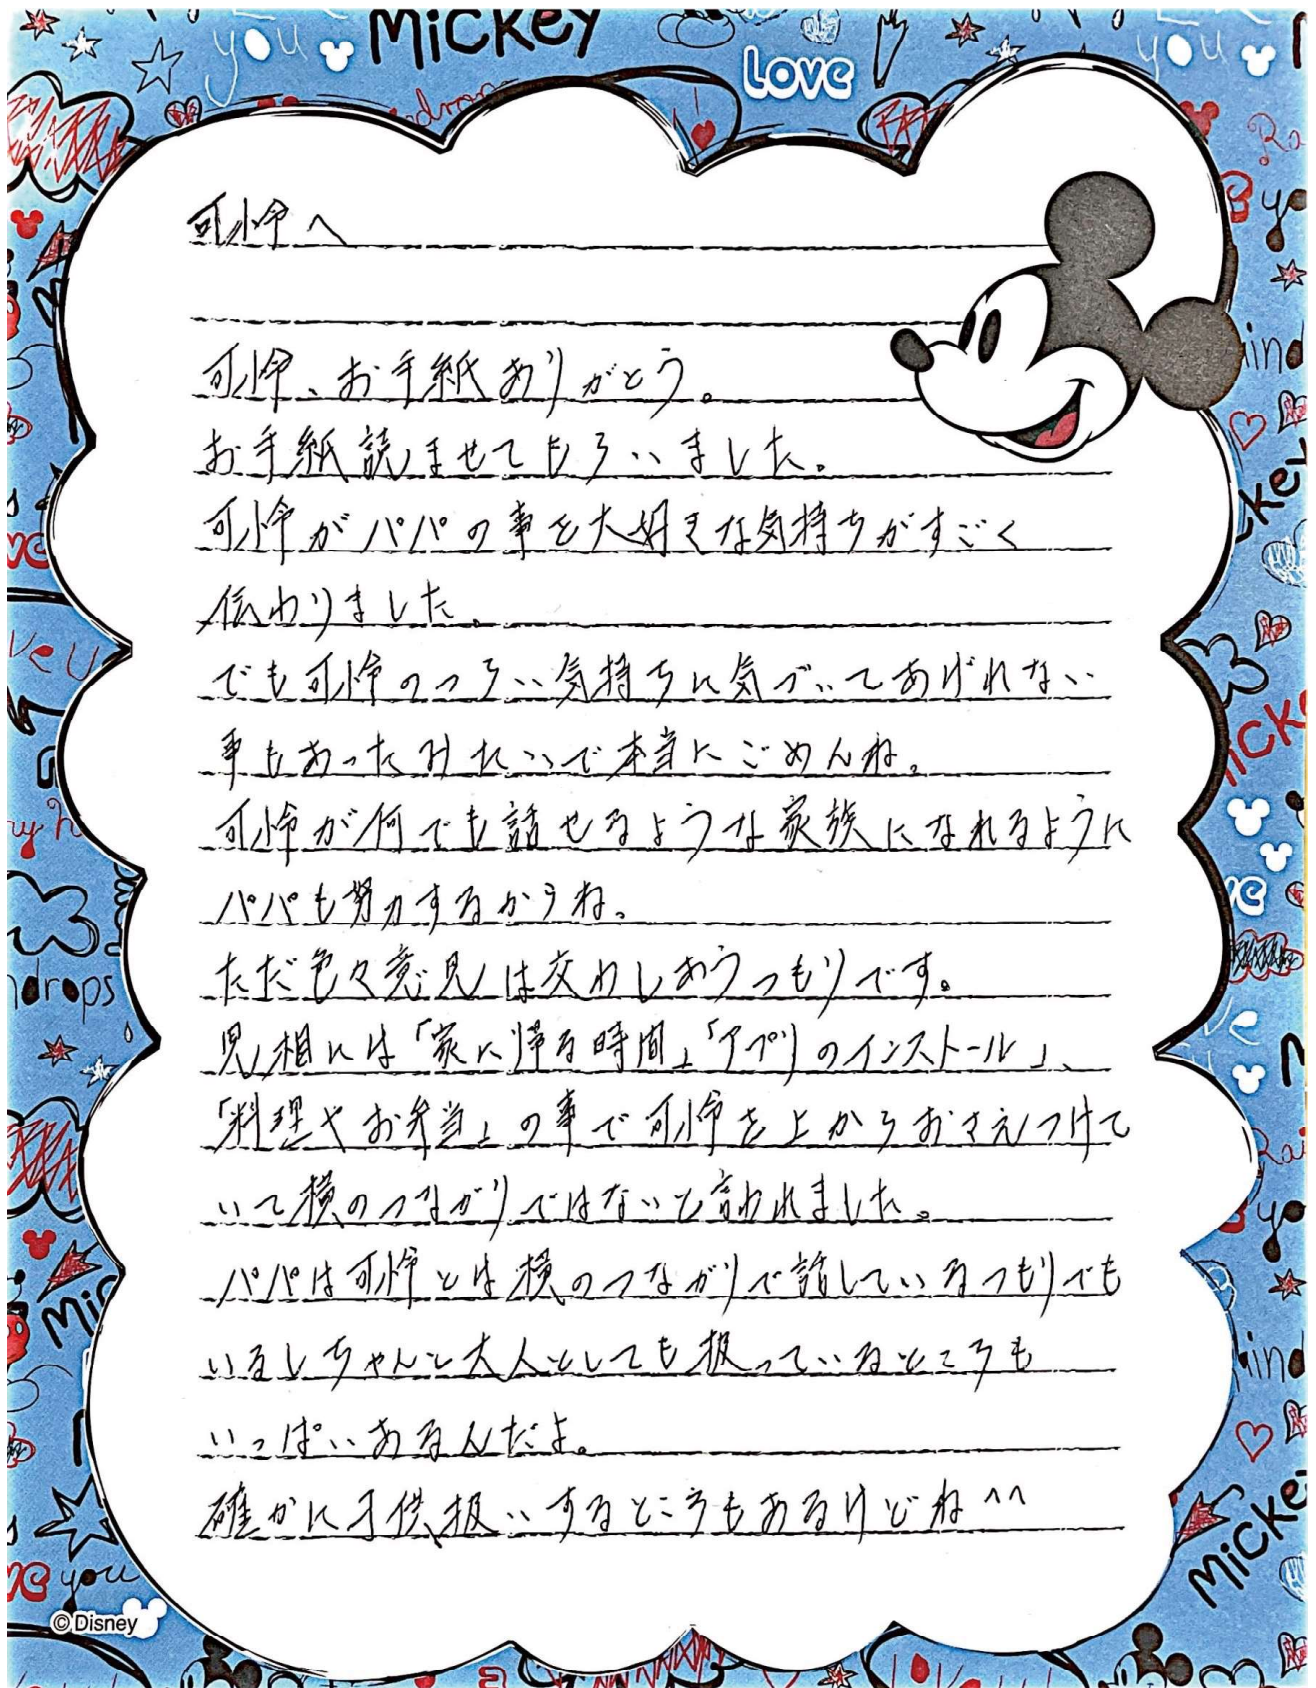 可憐へ
可憐、お手紙ありがとう。
お手紙読ませてもらいました。
可憐がパパの事を大好きな気持ちがすごく
伝わりました。
でも可憐のつらい気持ちに気づいてあげれない
事もあったみたいで本当にごめんね。
可憐が何でも話せるような家族になれるように
パパも努力するからね。
ただ色々意見は交わしあうつもりです。
児相には「家に帰る時間」「アプリのインストール」、
「料理やお弁当」の事で可憐を上からおさえつけて
いて横のつながりではないと言われました。
パパは可憐とは横のつながりで話しているつもりでも
いるしちゃんと大人としても扱っているところも
いっぱいあるんだよ。
確かに子供扱いするところもあるけどね^^
Mickey
Love
you
© Disney